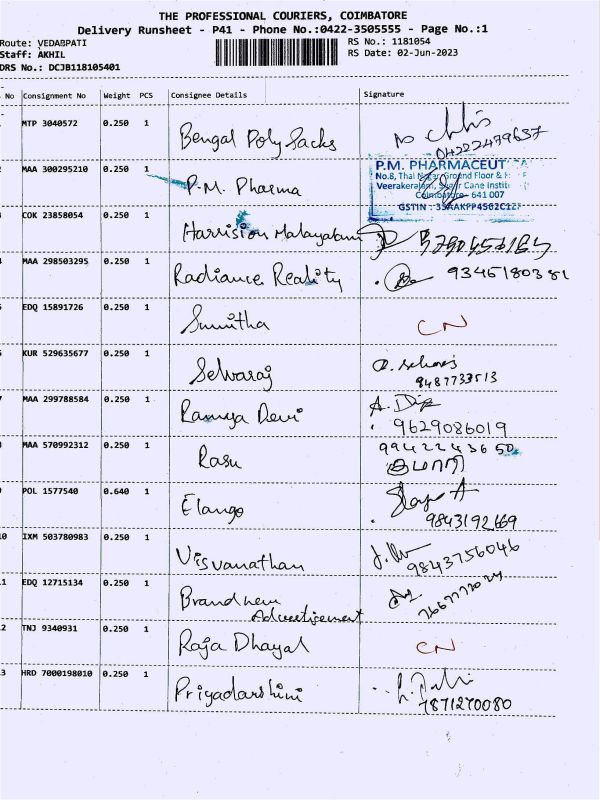 THE PROFESSIONAL COURIERS, COIMBATORE
Delivery Runsheet - P41 - Phone No.:0422-3505555 - Page No.:1
Route: VEDABPATI RS No.: 1181054
Staff: AKHIL RS Date: 02-Jun-2023
DRS No.: DCJB118105401
No Consignment No Weight PCS Consignee Details Signature
MTP 3040572 0.250 1 Bengal Poly Sacks
04222479637
MAA 300295210 0.250 1 P.M. Pharma
P.M. PHARMACEUT
No.8, Ground Floor &
Veerakeralam, Cane Instit
Coimbatore- 641 007
GSTIN :
COK 23858054 0.250 1 Harrision Malayalam
MAA 298503295 0.250 1 Radiance Reality 9345180381
EDQ 15891726 0.250 1 Sunitha CN
KUR 529635677 0.250 1 Selvaraj
9487733513
MAA 299788584 0.250 1 Ramya Devi
9629086019
MAA 570992312 0.250 1 Rasu 9942243650
குமாரி
POL 1577540 0.640 1 Elango
9843192669
0 IXM 503780983 0.250 1 Visvanathan 9843756046
1 EDQ 12715134 0.250 1 Brandnew
Advertisement
2 TNJ 9340931 0.250 1 Raja Dhayal CN
3 HRD 7000198010 0.250 1 Priyadarshini
7871270080